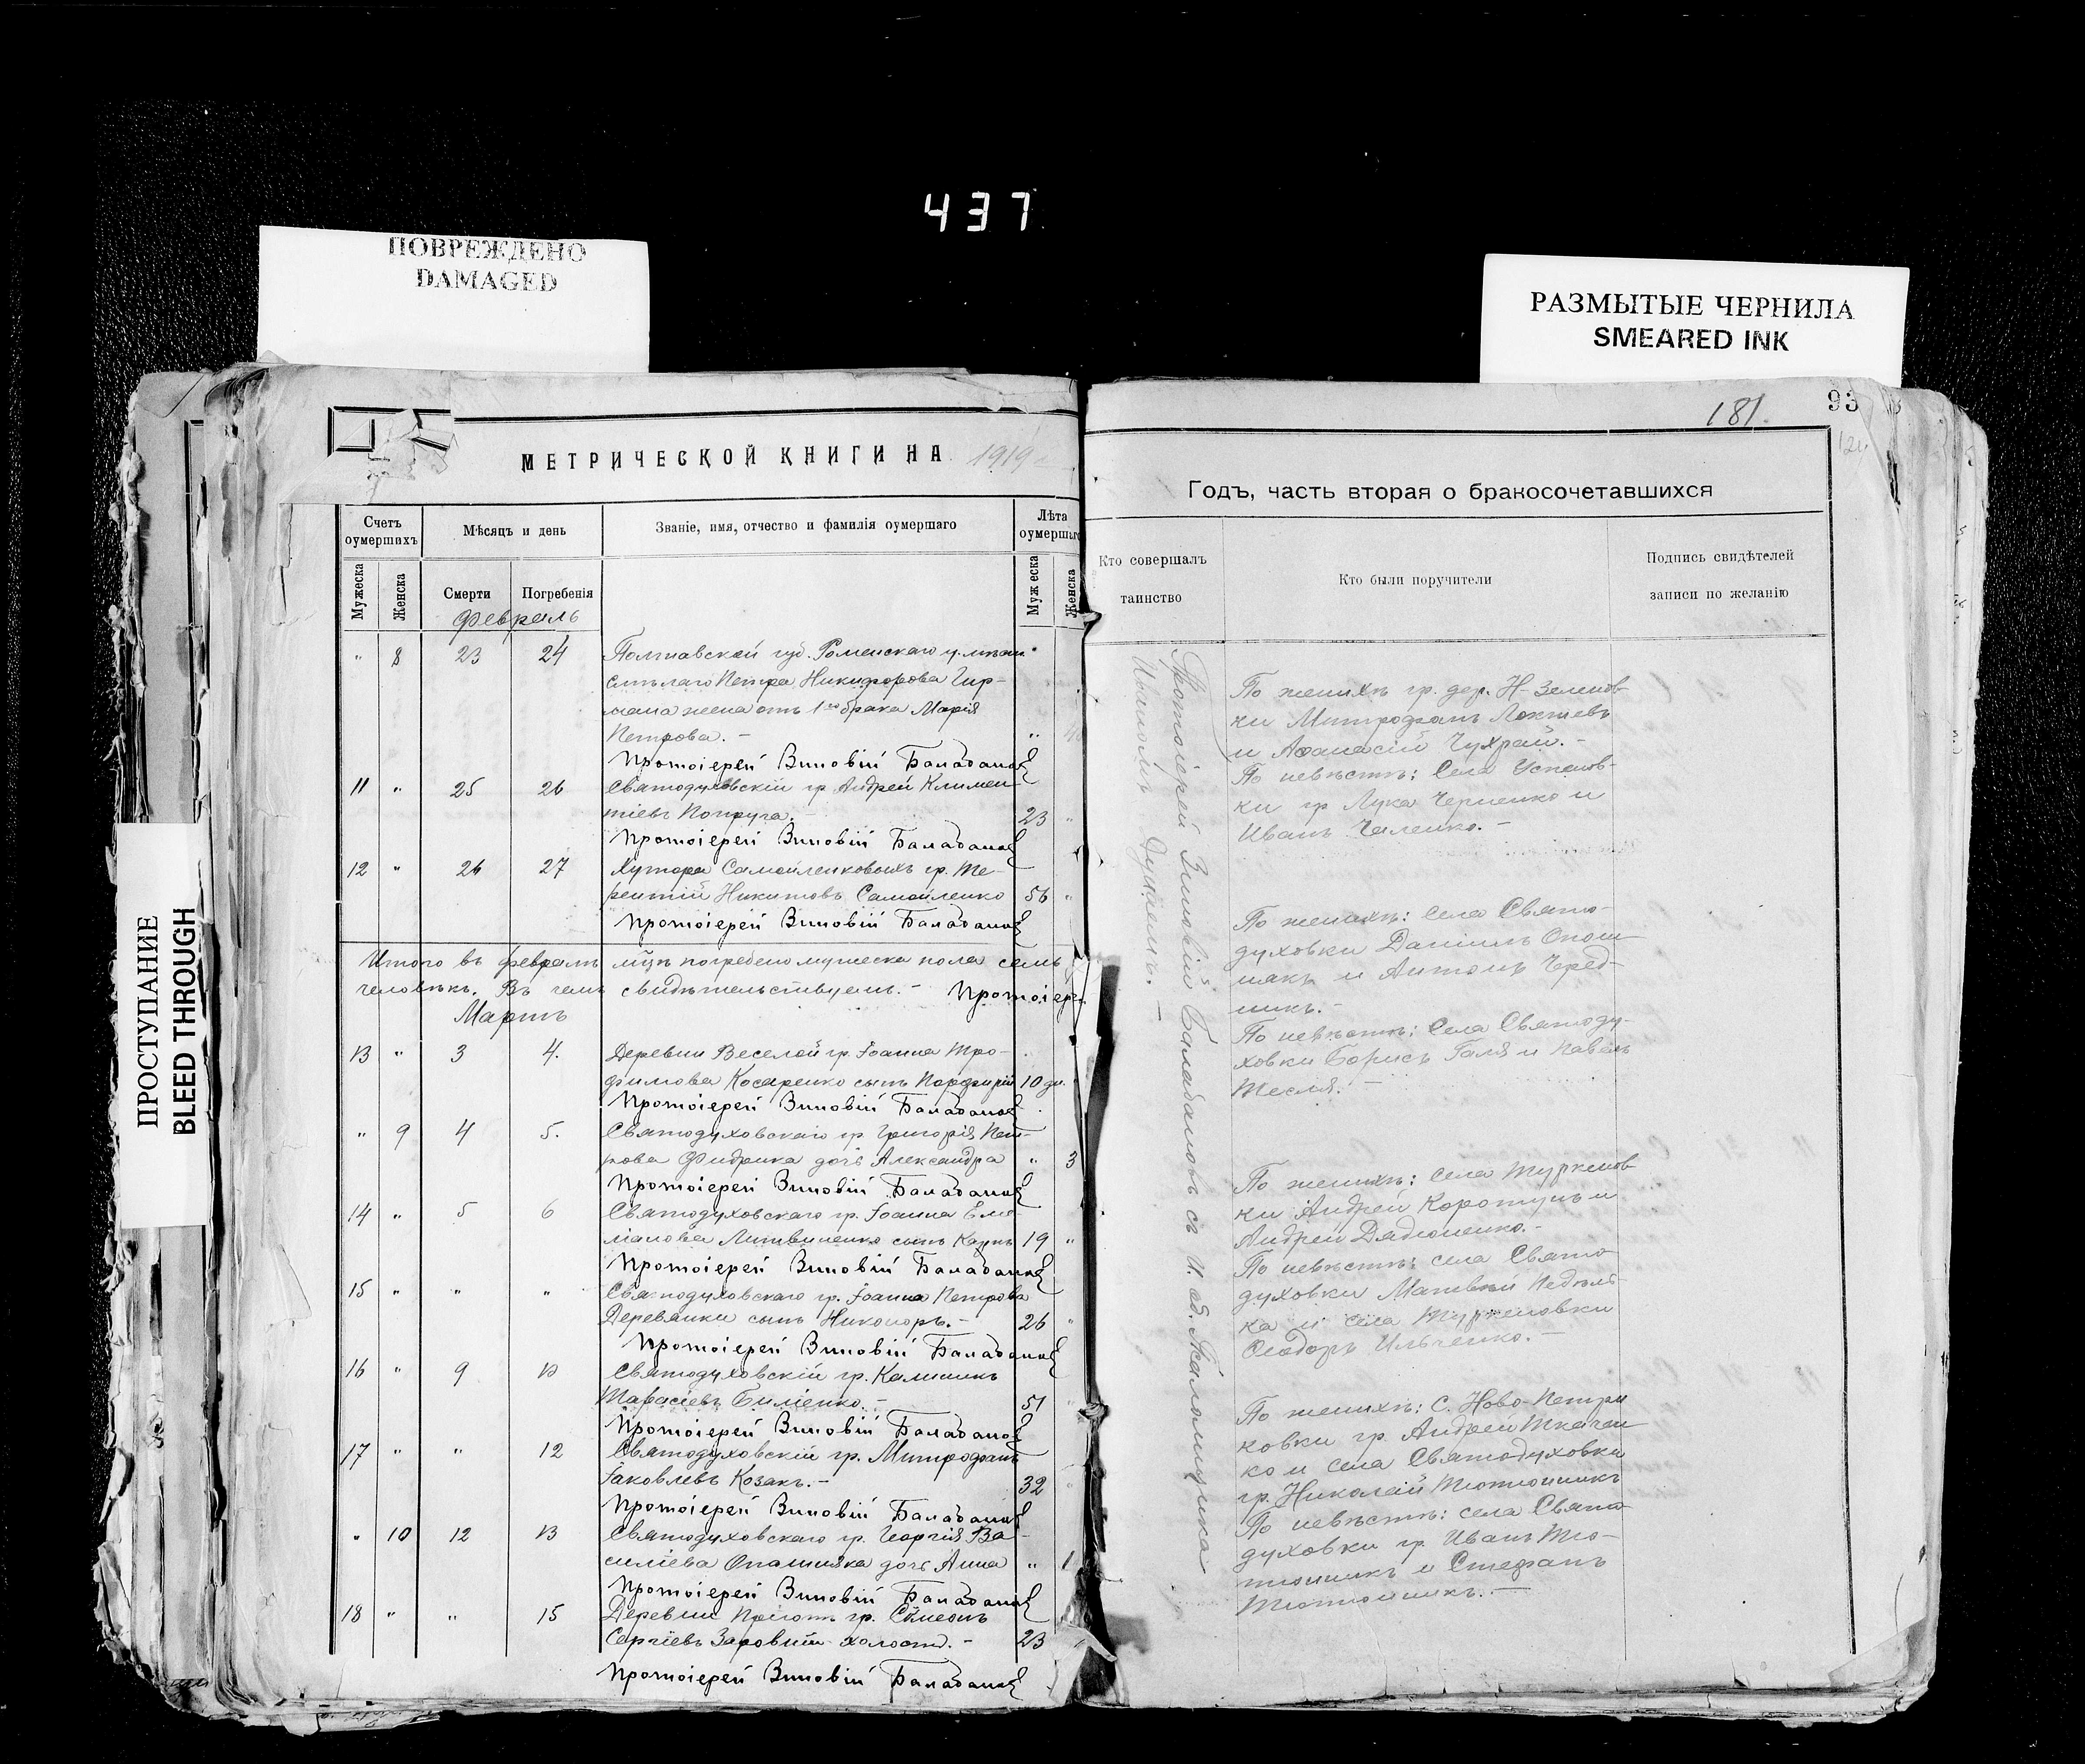 437
ПОВРЕЖДЕНО
DAMAGED
РАЗМЫТЫЕ ЧЕРНИЛА
SMEARED INK
ПРОСТУПАНИЕ
BLEED THROUGH
МЕТРИЧЕСКОЙ КНИГИ НА 1919
Счетъ оумершихъ
Мѣсяцъ и день
Званіе, имя, отчество и фамилія оумершаго
Лѣта оумершаго
Мужеска
Женска
Смерти
Погребенія
Мужеска
Женска
Февраль
" 8 23 24 Полтавской губ. Роменскаго у.
Петра Никифорова Гир-
мана жена отъ 1го брака Марія
Петрова. -
Протоіерей Зиновій Балабановъ
11 " 25 26 Святодуховскій гр Андрей Климен
тіевъ Попруга. - 23 "
Протоіерей Зиновій Балабановъ
12 " 26 27 Хутора Самойленковыхъ гр. Те-
рентій Никитовъ Самойленко 56 "
Протоіерей Зиновій Балабановъ
Итого въ февралѣ мцѣ погребено мужеска пола семь
человѣкъ. Въ чемъ свидѣтельствуемъ. - Протоіерей
Мартъ
13 " 3 4. Деревни Веселой гр. Іоанна Тро-
фимова Косаренко сынъ Порфирій 10 дн.
Протоіерей Зиновій Балабановъ
" 9 4 5. Святодуховскаго гр Григорія Пет-
рова Фидрика дочь Александра " 3
Протоіерей Зиновій Балабановъ
14 " 5 6 Святодуховскаго гр. Іоанна Еме-
ліанова Литвиненко сынъ Карпъ 19 "
Протоіерей Зиновій Балабановъ
15 " " " Святодуховскаго гр. Іоанна Петрова
Деревянки сынъ Никоноръ. - 26 "
Протоіерей Зиновій Балабановъ
16 " 9 10 Святодуховскій гр. Калиникъ
Тарасіевъ Биліенко. - 51
Протоіерей Зиновій Балабановъ
17 " " 12 Святодуховскій гр. Митрофанъ
Іаковлевъ Козакъ. - 32
Протоіерей Зиновій Балабановъ
" 10 12 13 Святодуховскаго гр. Георгія Ва-
силіева Опашняка дочь Анна " 1
Протоіерей Зиновій Балабановъ
18 " " 15 Деревни гр. Сѵмеонъ
Сергіевъ холостъ. - 23
Протоіерей Зиновій Балабановъ
181.
93
124
Годъ, часть вторая о бракосочетавшихся
Кто совершалъ таинство
Кто были поручители
Подпись свидѣтелей записи по желанію
Протоіерей Зиновій Балабановъ съ и. об. Псаломщика
По женихѣ гр. дер. Н-Зеленов-
ки Митрофанъ Локтевъ
и Аѳанасій Чухрай. -
По невѣстѣ: Села Успенов-
ки гр Лука Черненко и
Иванъ Чиленко. -
По женихѣ: села Свято-
духовки Даніилъ Опош
някъ и Антонъ Черед-
никъ. -
По невѣстѣ: Села Святоду-
ховки Борисъ Галя и Павелъ
Тесля. -
По женихѣ: села Туркенов
ки Андрей Коротунъ и
Андрей Дядюненко. -
По невѣстѣ: села Свято
духовки Матвѣй Недѣль-
ка и села Туркеновки
Ѳеодоръ Ильченко. -
По женихѣ: С. Ново-Петри
ковки гр. Андрей Ткачен
ко и села Святодуховки
гр. Николай Тютюнникъ
По невѣстѣ: села Свято
духовки гр. Иванъ Тю-
тюнникъ и Стефанъ
Тютюнникъ. -